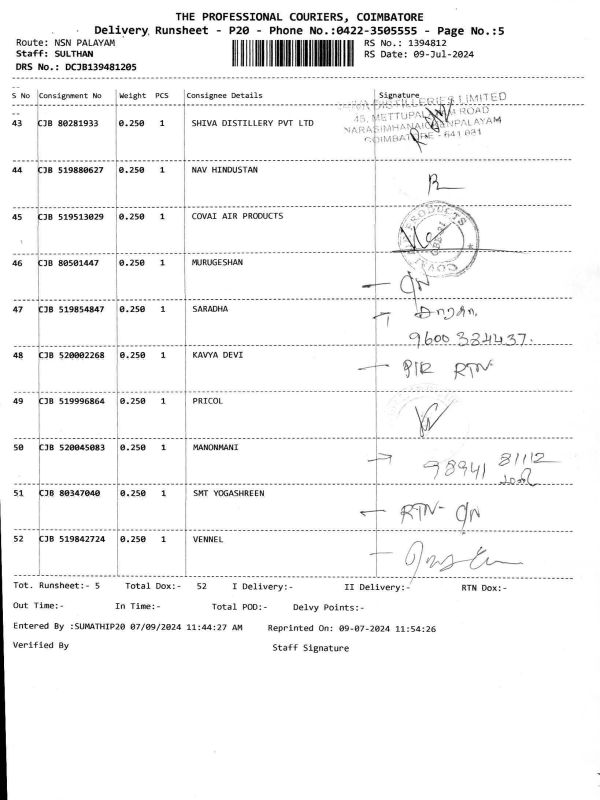 THE PROFESSIONAL COURIERS, COIMBATORE
Delivery Runsheet - P20 - Phone No.:0422-3505555 - Page No.:5
Route: NSN PALAYAM RS No.: 1394812
Staff: SULTHAN RS Date: 09-Jul-2024
DRS No.: DCJB139481205
S No Consignment No Weight PCS Consignee Details Signature
DISTILLERIES LIMITED
45, METTUPALAYAM ROAD
43 CJB 80281933 0.250 1 SHIVA DISTILLERY PVT LTD
COIMBATORE - 641 031
44 CJB 519880627 0.250 1 NAV HINDUSTAN
45 CJB 519513029 0.250 1 COVAI AIR PRODUCTS
PRODUCTS
COVAI
46 CJB 80501447 0.250 1 MURUGESHAN
47 CJB 519854847 0.250 1 SARADHA
9600 324437.
48 CJB 520002268 0.250 1 KAVYA DEVI
RTN
49 CJB 519996864 0.250 1 PRICOL
50 CJB 520045083 0.250 1 MANONMANI
98941 81112
51 CJB 80347040 0.250 1 SMT YOGASHREEN
RTN-
52 CJB 519842724 0.250 1 VENNEL
Tot. Runsheet:- 5 Total Dox:- 52 I Delivery:- II Delivery:- RTN Dox:-
Out Time:- In Time:- Total POD:- Delvy Points:-
Entered By :SUMATHIP20 07/09/2024 11:44:27 AM Reprinted On: 09-07-2024 11:54:26
Verified By Staff Signature